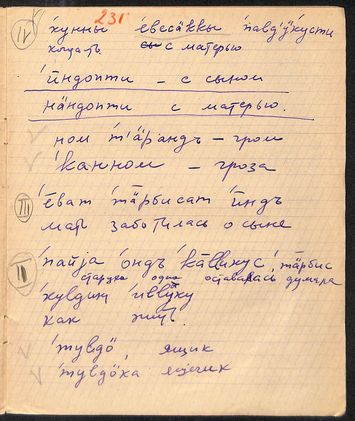 231
IV 'кунны 'евесӓккы 'павд'ӱ'кусти
кощать с матерью
'ӣндопти – с сыном
нӓндопти с матерью.
ном т'ӓрандъ – гром
'канном – гроза
III 'еват 'тӓрбисат 'ӣндъ
мать заботилась о сыне
II 'паija 'ондъ 'ка̄ликус', 'тӓрбис
старуха одна оставалась думала
'кувдин 'иввӱку
как жить.
'тувдӧ, ящик
'тувдӧка ящичек